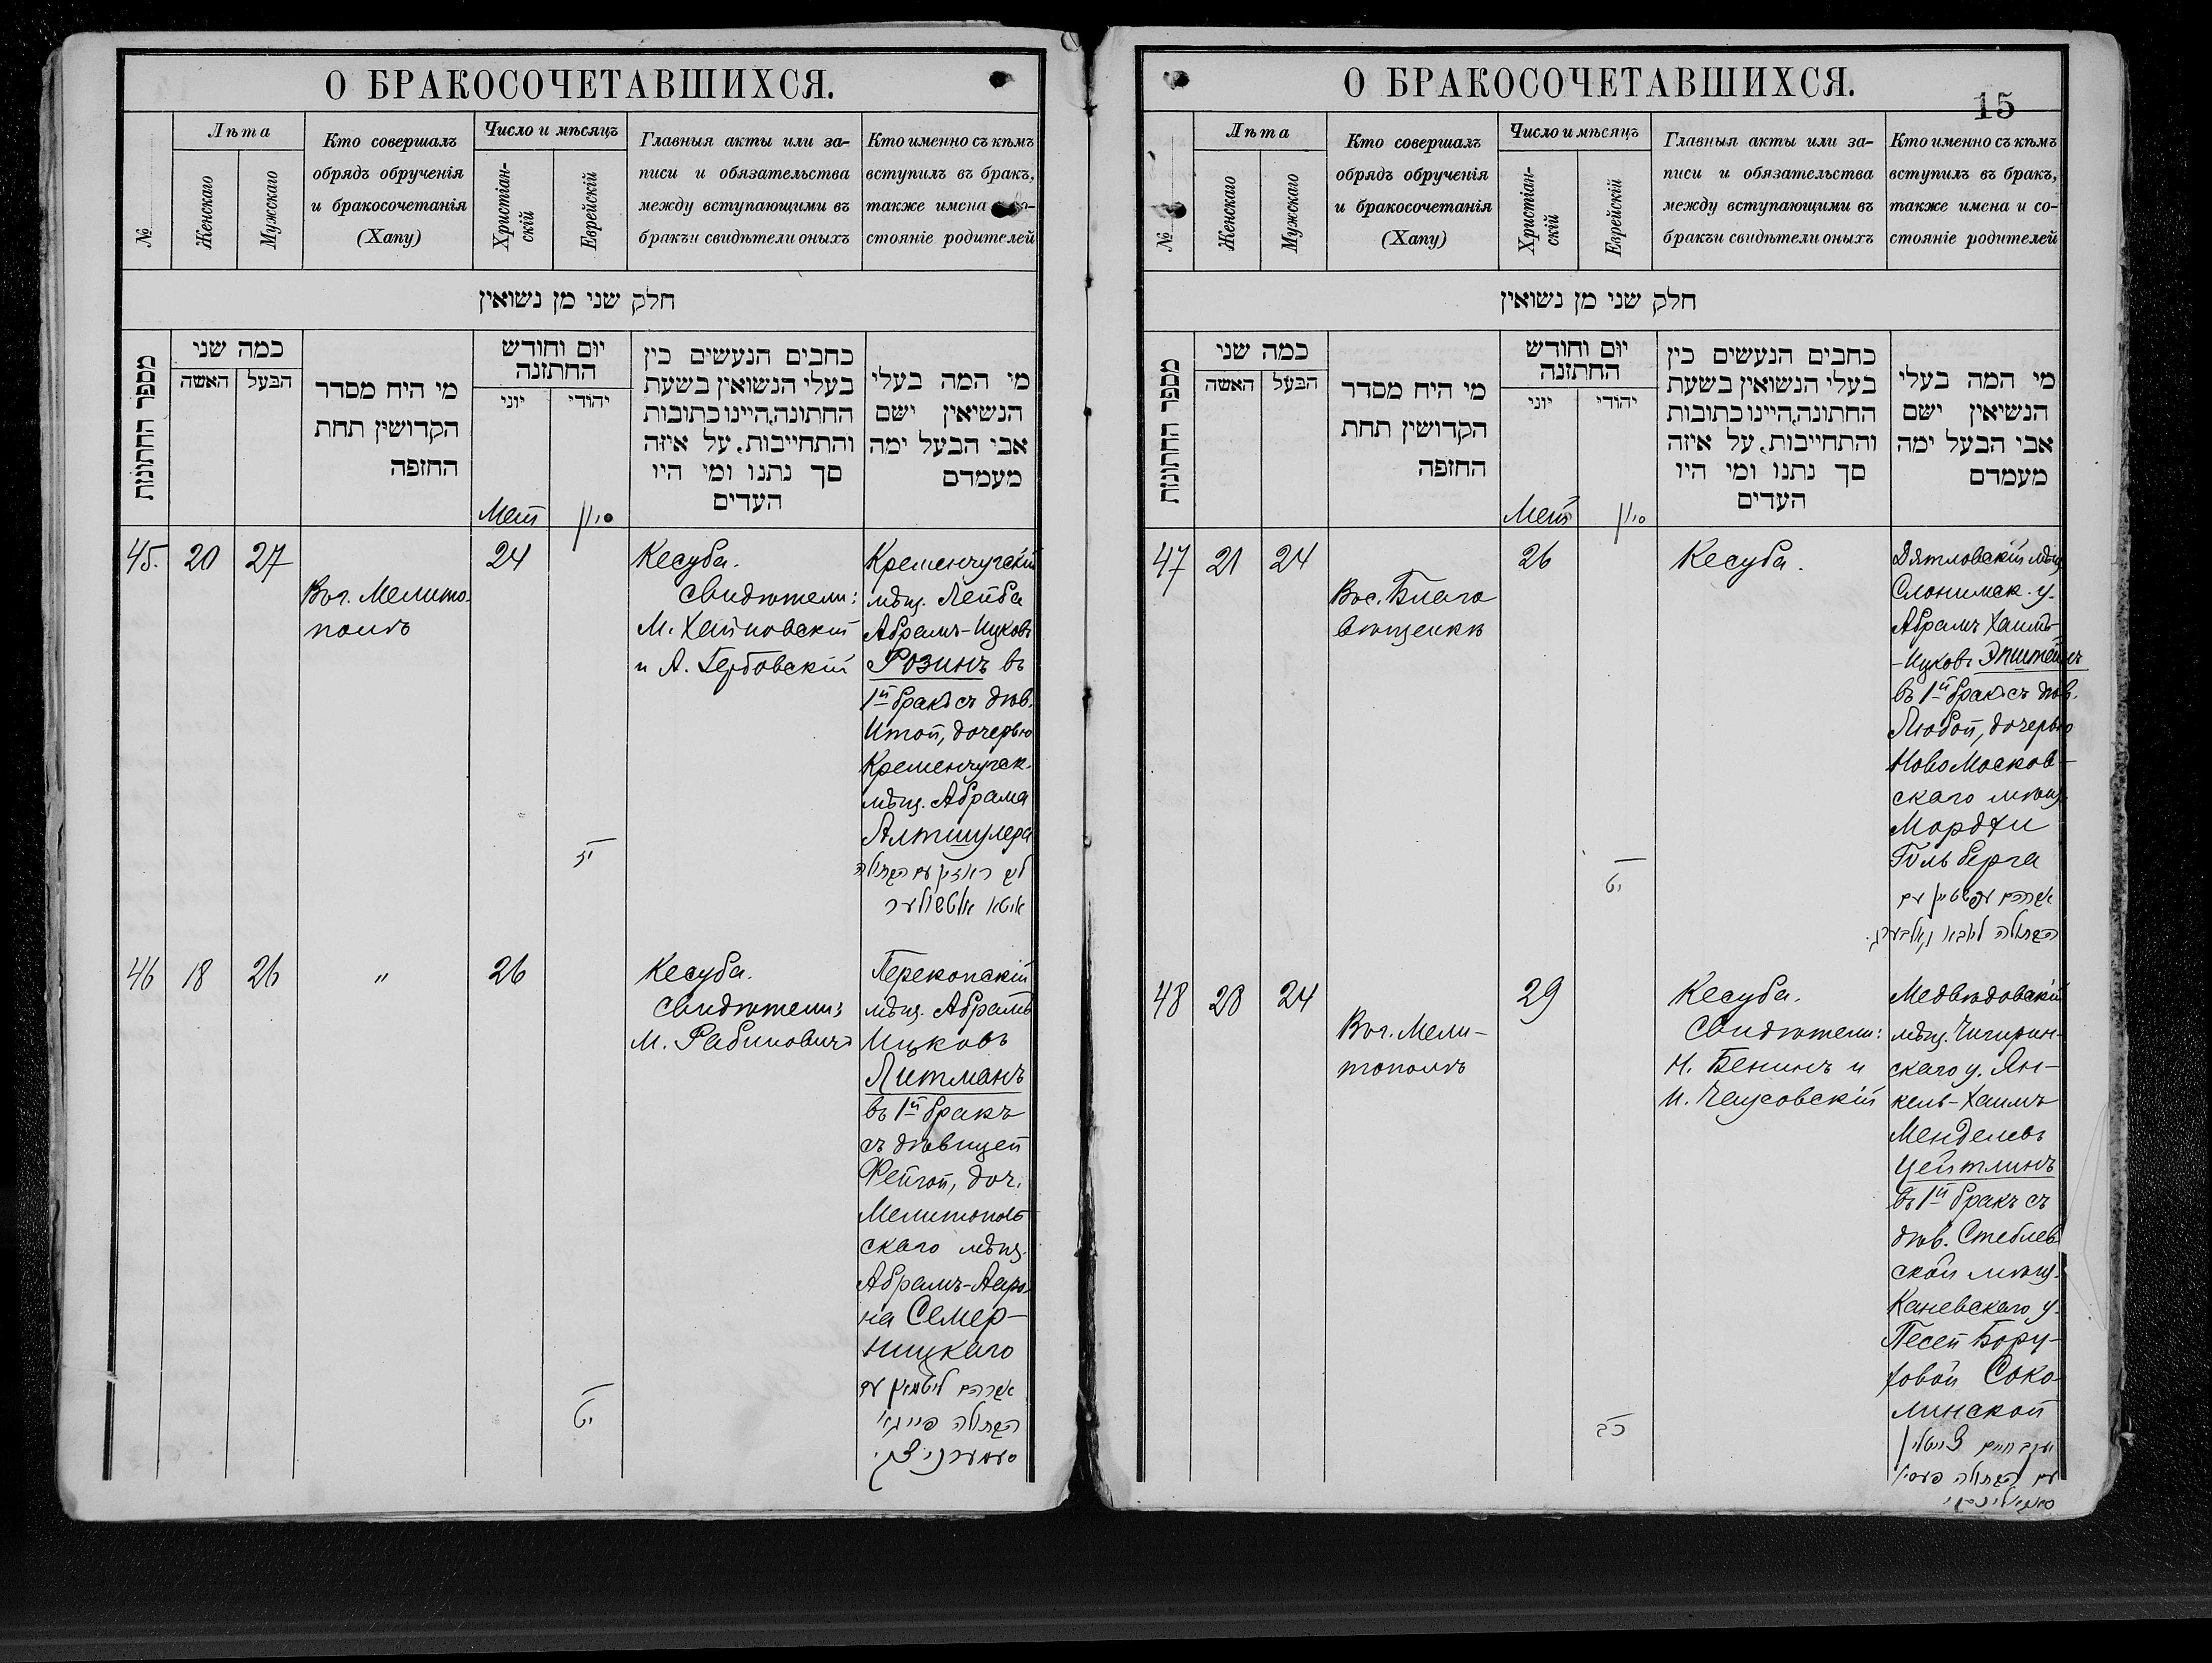 О БРАКОСОЧЕТАВШИХСЯ.
№
Лѣта
Женскаго
Мужскаго
Кто совершалъ
обрядъ обрученія
и бракосочетанія
(Хапу)
Число и мѣсяцъ
Христіан-
скій
Еврейскій
Главныя акты или за-
писи и обязательства
между вступающими въ
бракъи свидѣтели оныхъ
Кто именно съ кѣмъ
вступилъ въ бракъ,
также имена
стояніе родителей
חלק שני מן נשואין
מספר החתונות
כמה שני
האשה
הבעל
מי היח מסדר
הקדושין תחת
החופה
יום וחודש
החתונה
יוני
יהודי
כחבים הנעשים כין
בעלי הנשואין בשעת
החתונה,היינו כתובות
והתחייבות, על איזה
סך נתנו ומי היו
העדים
מי המה בעלי
הנשיאין ישם
אבי הבעל ימה
מעמדם
סיון
45.
20
27
Вог. Мелито-
полѣ
24
יז
Кесуба.
Свидѣтели:
М. Хайновскій
и А. Гербовскій
Кременчугскій
мѣщ. Лейба
Абрамъ-Ицковъ
Розинъ въ
1й бракъ съ дѣв.
Итой, дочерью
Кременчугск.
мѣщ. Абрама
Алтшулера
לייב ראזין עם הבתולה
איטא אלטשולער
46
18
26
"
26
יט
Кесуба.
Свидѣтели:
М. Рабиновичъ
Перекопскій
мѣщ. Абрамъ
Ицковъ
Литманъ
въ 1й бракъ
съ дѣвицей
Фейгой, доч.
Мелитополь-
скаго мѣщ.
Абрамъ-Ааро-
на Семер-
ницкаго
אברהם ליטמאן עם
הבתולה פייגא
סעמערניצקי
О БРАКОСОЧЕТАВШИХСЯ.
15
№
Лѣта
Женскаго
Мужскаго
Кто совершалъ
обрядъ обрученія
и бракосочетанія
(Хапу)
Число и мѣсяцъ
Христіан-
скій
Еврейскій
Главныя акты или за-
писи и обязательства
между вступающими въ
бракъи свидѣтели оныхъ
Кто именно съ кѣмъ
вступилъ въ бракъ,
также имена и со-
стояніе родителей
חלק שני מן נשואין
מספר החתונות
כמה שני
האשה
הבעל
מי היח מסדר
הקדושין תחת
החופה
יום וחודש
החתונה
יוני
יהודי
כחבים הנעשים כין
בעלי הנשואין בשעת
החתונה,היינו כתובות
והתחייבות, על איזה
סך נתנו ומי היו
העדים
מי המה בעלי
הנשיאין ישם
אבי הבעל ימה
מעמדם
סיון
47
21
24
Вос. Благо
вѣщенкѣ
26
יט
Кесуба.
Дятловскій мѣщ.
Слонимск. у.
Абрамъ Хаимъ-
-Ицковъ Эпштейнъ
въ 1й бракъ съ дѣв.
Любой, дочерью
НовоМосков-
скаго мѣщ.
Мордхи
Гольберга
אברהם עפשטיין עם
הבתולה ליובא גאלבערג.
48
23
24
Вог. Мели-
тополѣ
29
כב
Кесуба.
Свидѣтели:
Н. Бенинъ и
И. Чаусовскій
Медвѣдовскій
мѣщ. Чигирин-
скаго у. Ян-
кель-Хаимъ
Менделевъ
Цейтлинъ
въ 1й бракъ съ
дѣв. Стеблев-
ской мѣщ.
Каневскаго у.
Песей Бору-
ховой Соко-
линской
יעקב חיים צייטלין
עם הבתולה פעסיא
סאקאלינסקי